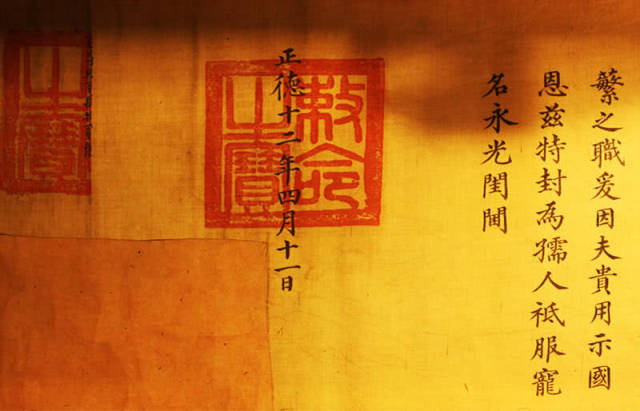 繁之職爰因夫貴用示國
恩兹特封為孺人祗服寵
名永光閨閫
正德十二年四月十一日
敕命
之寶
之寶